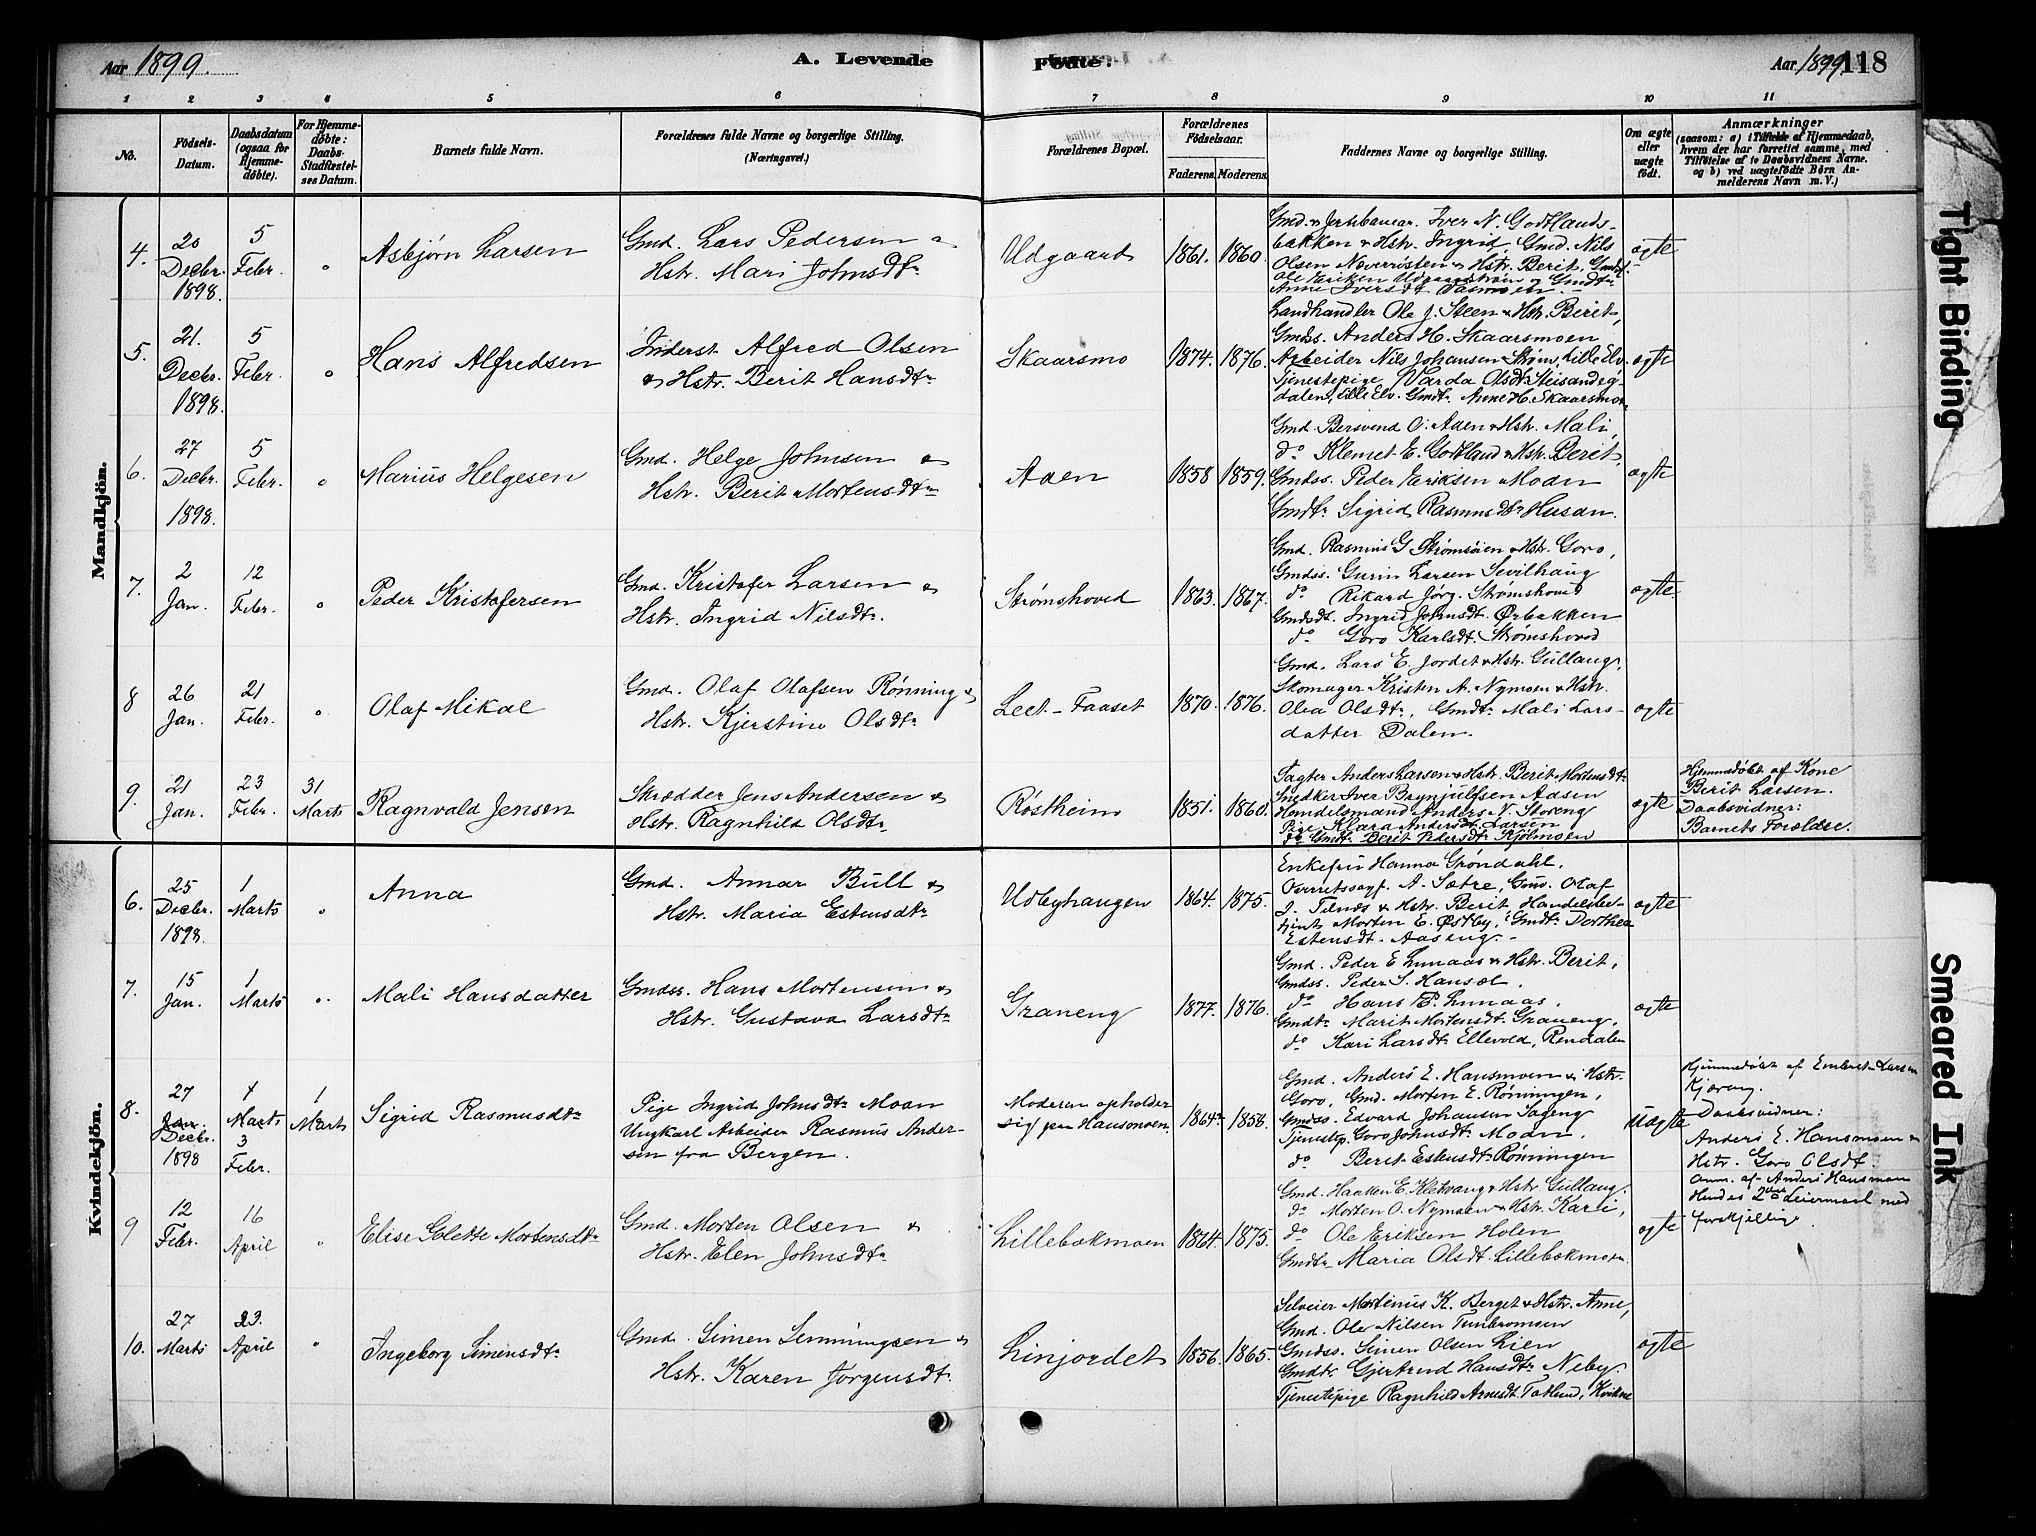 Aar 1899.
A. Levende
Fødte.
Aar 1899
118
1 2 3 4 5 6 7 8 9 10 11
No.
Födsels-
Datum.
Daabsdatum
(ogsaa for
Hjemme-
döbte).
For Hjemme-
döbte:
Daabs-
Stadfæstel-
ses Datum.
Barnets fulde Navn.
Forældrenes fulde Navne og borgerlige Stilling.
(Næringsvei.)
Forældrenes Bopæl.
Forældrenes
Födselsaar.
Faderens. Moderens.
Faddernes Navne og borgerlige Stilling.
Om ægte
eller
uægte
födt.
Anmærkninger
(saasom: a) i Tilfælde af Hjemmedaab,
hvem der har forrettet samme, med
Tilföielse af to Daabsvidners Navne.
og b) ved uægtefödte Börn An-
melderens Navn m. V.)
Mandkjön.
4.
20
Decbr.
1898.
5
Febr.
"
Asbjørn Larsen
Gmd. Lars Pedersen &
Hstr. Mari Johnsdtr
Udgaard
1861. 1860.
Gmd. & Jernbanear. Iver N. Godtlands-
bakken & Hstr. Ingrid, Gmd. Nils
Olsen Nøverrøsten & Hstr. Berit, Gmds.
ægte
5.
21.
Decbr.
1898.
5
Febr.
"
Hans Alfredsen
Inderst Alfred Olsen
& Hstr. Berit Hansdtr
Skaarsmo
1874. 1876.
Landhandler Ole J. Steen & Hstr. Berit,
Gmdss. Anders H. Skaarsmoen
Arbeider Nils Johansen Strøm, Lille Elv.
Tjenestepige Varda Olsdt.
dalen, Lille Elv. Gmdt. Anne H. Skaarsmoen
ægte
6.
27
Decbr.
1898.
5
Febr.
"
Marius Helgesen
Gmd. Helge Johnsen &
Hstr. Berit Mortensdtr
Aaen
1858 1859.
Gmd. Bersvend O. Aaen & Hstr. Mali,
do Klemet E. Godtland & Hstr. Berit,
Gmdss. Peder Eriksen Moan
Gmdtr Sigrid Rasmusdtr Husan.
ægte
7.
2
Jan.
12
Febr.
"
Peder Kristofersen
Gmd. Kristofer Larsen &
Hstr. Ingrid Nilsdtr.
Strømshoved
1863. 1867.
Gmd. Rasmus G. Strømsøien & Hstr. Goro,
Gmdss. Gurin Larsen Sevilhaug
do Rikard Jørg. Strømshoved
Gmdsdt. Ingrid Johnsdt. Ørbakken
do Goro Karlsdt. Strømshoved
ægte.
8
26
Jan.
21
Febr.
"
Olaf Mikal
Gmd. Olaf Olafsen Rønning &
Hstr. Kjerstine Olsdtr
Leet-Faaset
1870. 1876.
Gmd. Lars E. Jordet & Hstr. Gullaug,
Skomager Kristen A. Nymoen & Hstr.
Olea Olsdtr, Gmdtr Mali Lars-
datter Dalen.
ægte
9.
21
Jan.
23
Febr.
31
Marts
Ragnvald Jensen
Skrædder Jens Andersen &
Hstr. Ragnhild Olsdtr
Røstheim
1851. 1860.
Anders Larsen & Hstr. Berit Mortensdtr
Snedker Iver Brynjulfsen Aasen
Handelsmand Anders N. Storeng
Pige Klara Andersdt. Larsen
do Gmdt. Berit Pedersdt. Kjølmoen
ægte
Hjemmedøbt af Kone
Berit Larsen.
Daabsvidner:
Barnets Forældre.
Kvindekjön.
6.
25
Decbr.
1898.
1
Marts
"
Anna
Gmd. Annar Bull &
Hstr. Maria Estensdtr
Udbyhaugen
1864. 1875.
Enkefru Hanna Grøndahl,
Overretssagf. A. Sætre, Gmd. Olaf
J. Tilnæs & Hstr. Berit Handelsbe-
tjent Morten E. Østby, Gmdtr Dorthea
Estensdt. Aaseng.
ægte
7.
15
Jan.
1
Marts
"
Mali Hansdatter
Gmdss. Hans Mortensen &
Hstr. Gustava Larsdtr
Graneng
1877. 1876.
Gmd. Peder E Lunaas & Hstr. Berit,
Gmdss. Peder S. Hansæl.
do Hans P. Lunaas.
Gmdtr Marit Mortensdt. Graneng,
do Kari Larsdtr Ellevold, Rendalen
ægte
8.
27
Jan.
Decbr.
1898
1
Marts
3
Febr.
1
Marts
Sigrid Rasmusdtr
Pige Ingrid Johnsdtr Moan
Ungkarl Arbeider Rasmus Ander-
sen fra Bergen.
Moderen opholder
sig paa Hansmoen.
1864. 1858.
Gmd. Anders E. Hansmoen & Hstr.
Goro, Gmd. Morten E. Rønningen,
Gmdss. Edvard Johansen Sageng
Tjenestep. Goro Johnsdt. Moan.
do Berit Estensdt. Rønningen
Uægte
Hjemmedøbt af Embret Larsen
Kjæreng.
Daabsvidner:
Anders E. Hansmoen &
Hstr. Goro Olsdt.
Anm. af Anders Hansmoen
Hendes 2det Leiermaal med
forskjellig.
9
12
Febr.
16
April
"
Elise Golette Mortensdtr
Gmd. Morten Olsen &
Hstr. Elen Johnsdtr
Lillebækmoen
1864. 1875.
Gmd. Haaken E. Kletvang & Hstr. Gullaug.
do Morten O. Nymoen & Hstr. Kari,
do Ole Eriksen Holen
Gmdtr Maria Olsdt. Lillebækmoen
ægte
10.
27
Marts
23.
April
"
Ingeborg Simensdtr
Gmd. Simen Semmingsen &
Hstr. Karen Jørgensdt.
Linjordet
1856. 1865.
Selveier Mortinus K. Berget & Hstr. Anne,
Gmd. Ole Nilsen Tunbromoen
Gmdss. Simen Olsen Lien
Gmdtr Gjertrud Hansdtr Neby
Tjenestepige Ragnhild Arnesdt. Totlund, Kvikne
ægte
Tight Binding
Smeared Ink